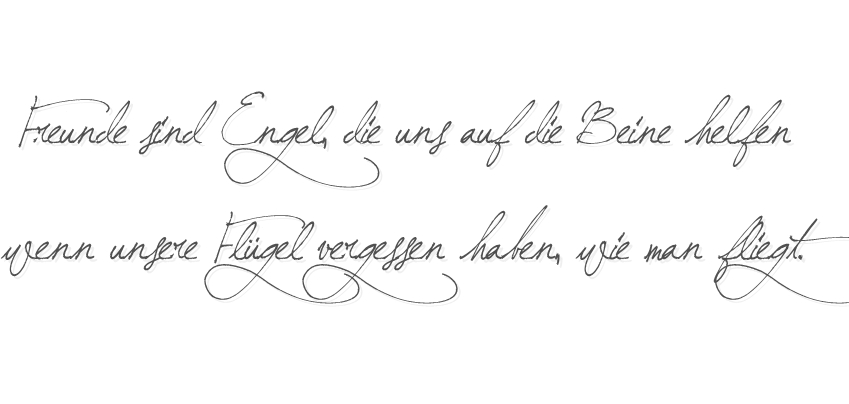 Freunde sind Engel, die uns auf die Beine helfen
wenn unsere Flügel vergessen haben, wie man fliegt.